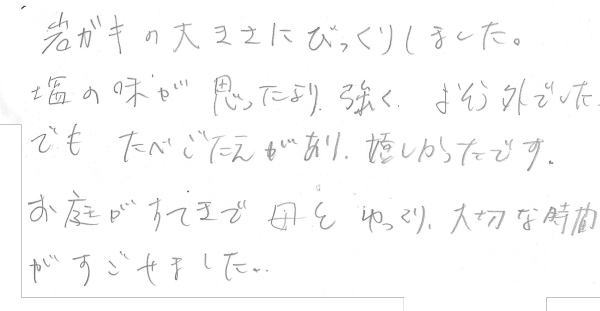 岩ガキの大きさにびっくりしました。
塩の味が思ったより、強く、よそう外でした。
でも たべごたえがあり、嬉しかったです。
お庭がすてきで 母と ゆっくり、大切な時間
がすごせました。